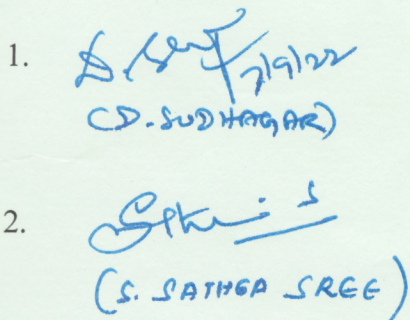 1. D. 7/9/22
(D. SUDHAGAR)
2. S
(S. SATHEA SREE)